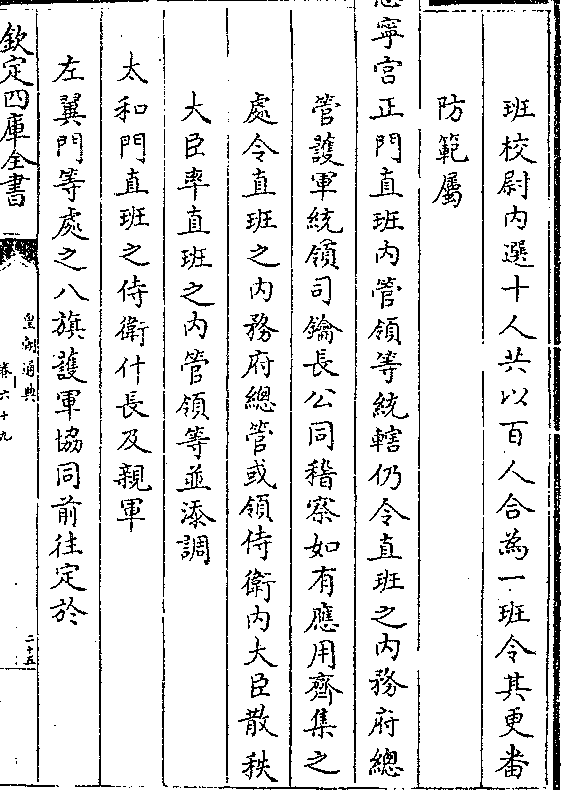 班校尉内選十人共以百人合為一班令其更番
防範屬
寧宫正門直班内管領等統轄仍令直班之内務府總
管護軍統領司鑰長公同稽察如有應用齊集之
處令直班之内務府總管或領侍衛内大臣散秩
大臣率直班之内管領等並添調
太和門直班之侍衛什長及親軍
左翼門等處之八旗護軍協同前往定於
欽定四庫全書
皇朝通典
卷六十九
二十五